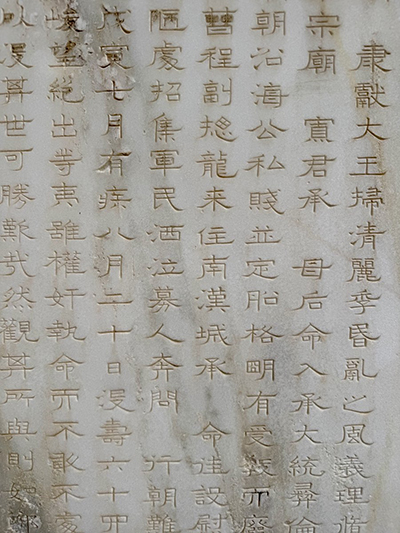 康獻大王掃清麗季昏亂之風義理脩
宗廟 寡君承 母后命入承大統彛倫
朝沿海公私賤並定船格明有受敎而廢
曹程副摠龍來住南漢城承 命往設慰
陋處招集軍民洒泣募人奔問 行朝難
戊寅七月有疾八月二十日沒壽六十四
峻望絶出等夷雖權奸執命而不敢不
以沒其世可勝歎哉然觀其所與則如鄭